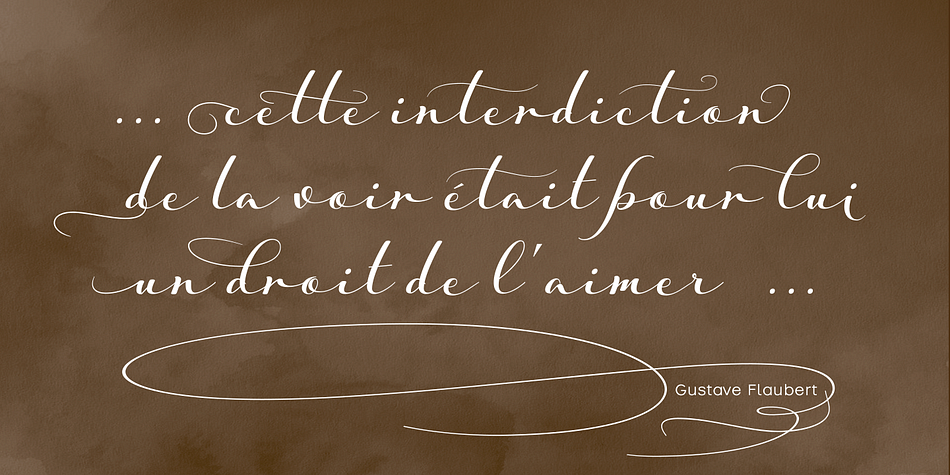 ... cette interdiction
de la voir était pour lui
un droit de l'aimer ...
Gustave Flaubert